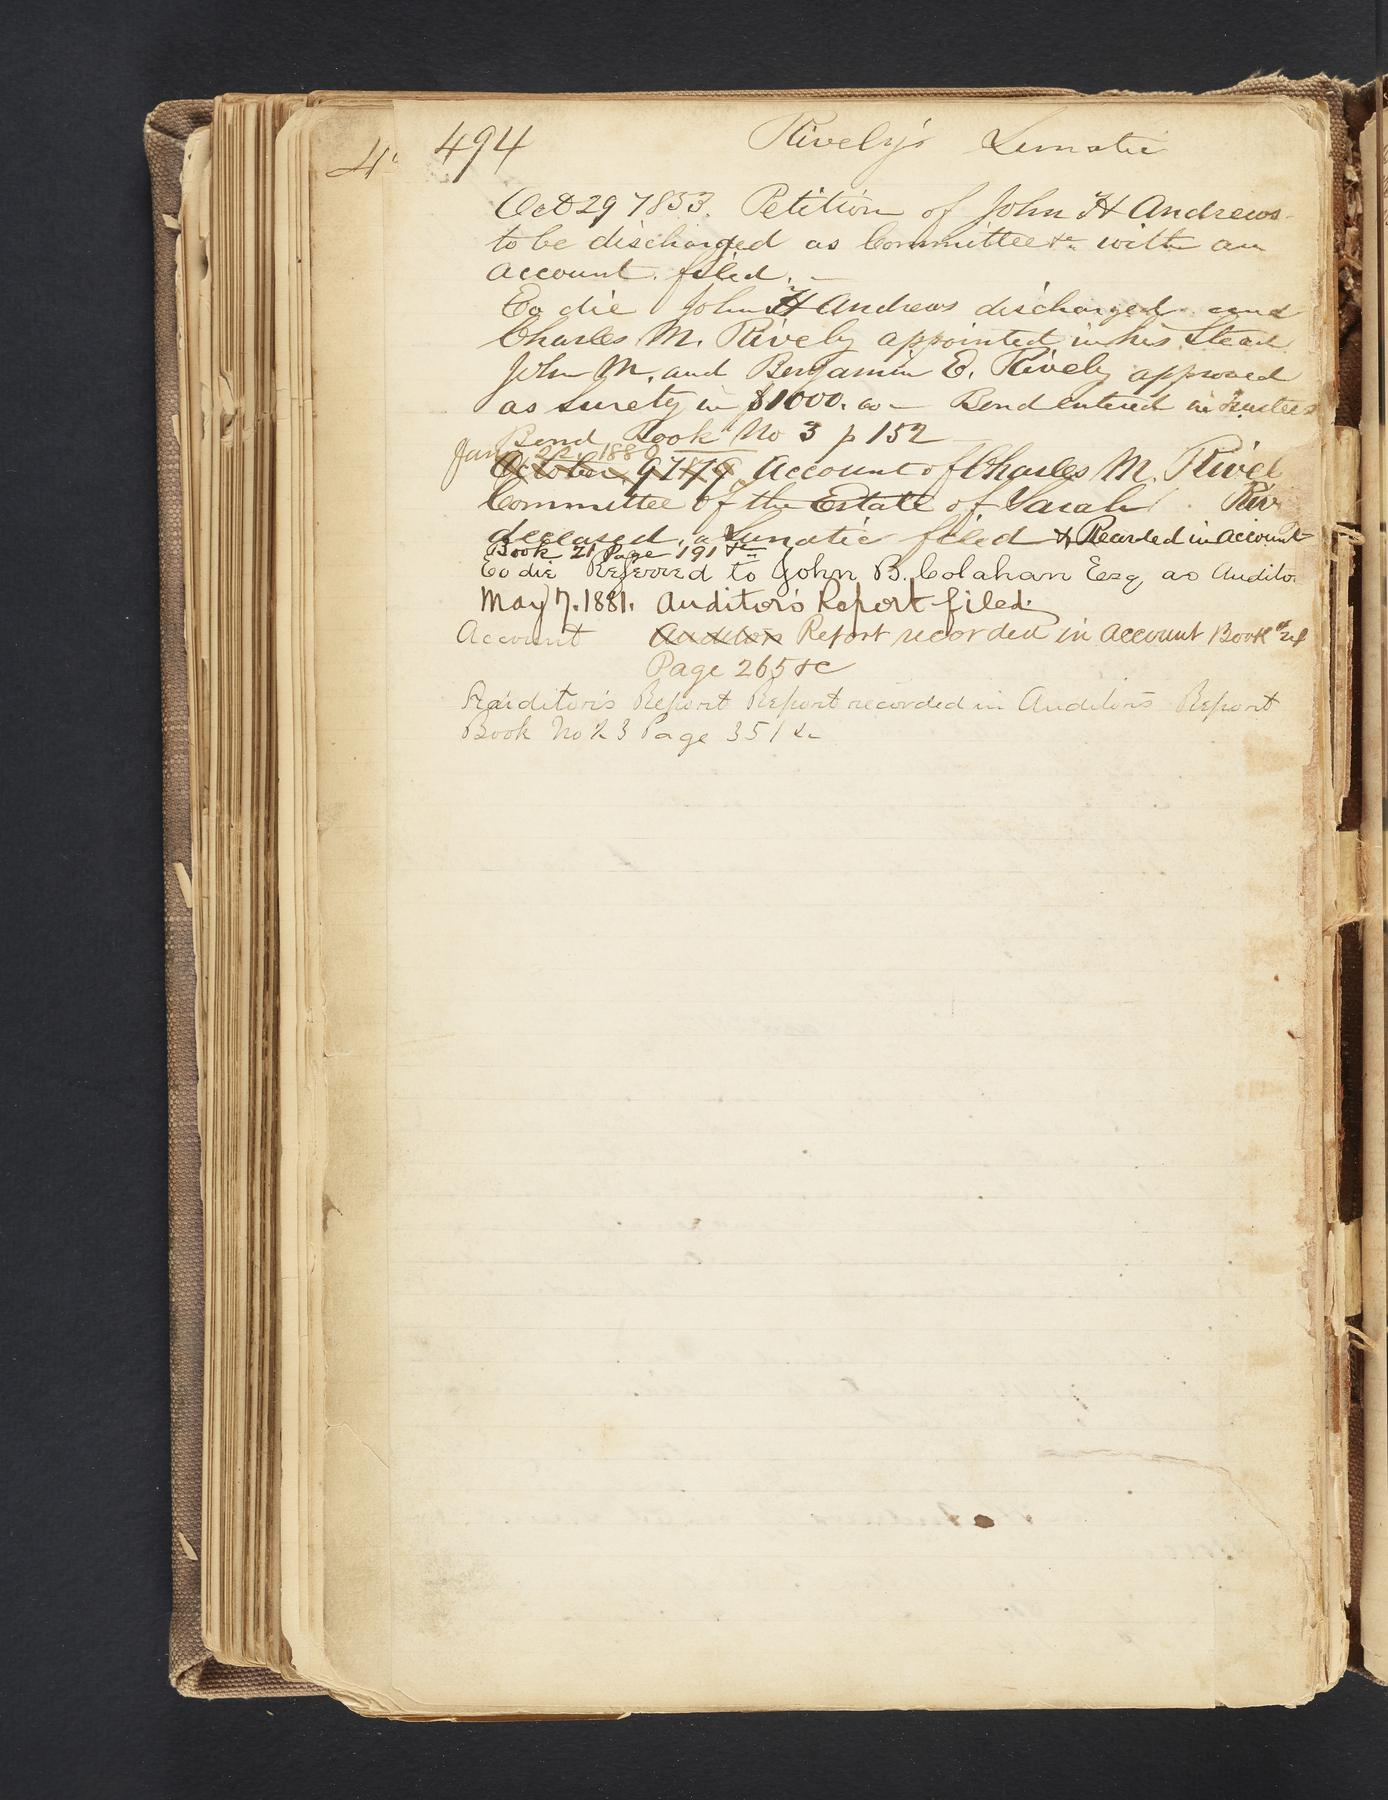 494 Rively's Lunatic
Oct 29 1853. Petition of John H Andrews
to be discharged as Committee &c with an
account filed. —
Eo die John H Andrews discharged and
Charles M. Rively appointed in his Stead
John M. and Benjamin E. Rively approved
as surety in $1000. — Bond entered in Trustees
Bond Book No 3 p 152
Jan 22 1880
October 9 1879 Account of Charles M. Rivel
Committee of the Estate of Sarah Riv
deceased, a Lunatic filed & Recorded in account
Book 21 Page 191 &c
Eo die Referred to John B. Colahan Esq as Audito
May 7. 1881. Auditor's Report filed.
Account Auditors Report recorded in Account Book
Page 265 &c
Auditor's Report Report recorded in Auditors Report
Book No 23 Page 351 &c